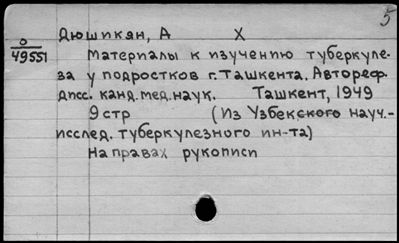 5
Дюшикян, А X
0
49551
Материалы к изучению туберкуле-
за у подростков г. Ташкента. Автореф.
дисс. канд. мед. наук. Ташкент, 1949
9 стр (Из Узбекского науч.-
исслед. туберкулезного ин-та)
На правах рукописи